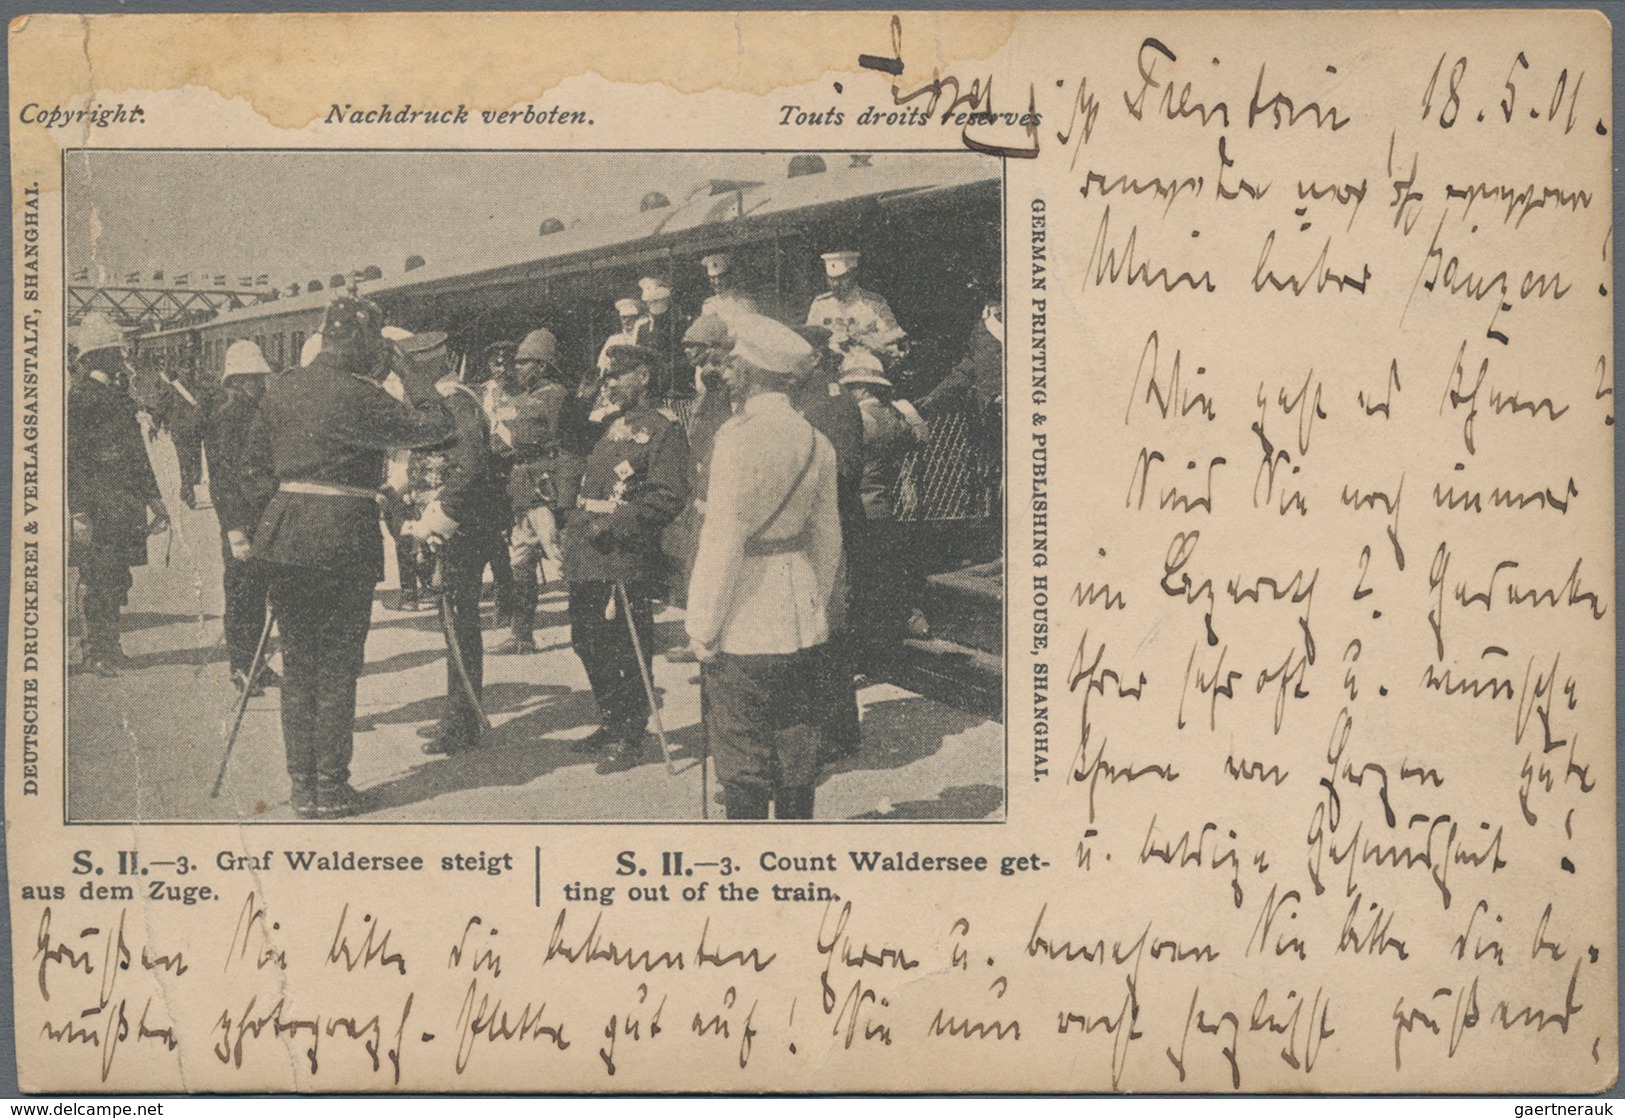 Copyright. Nachdruck verboten. Touts droits reservés
DEUTSCHE DRUCKEREI & VERLAGSANSTALT, SHANGHAI.
GERMAN PRINTING & PUBLISHING HOUSE, SHANGHAI.
S. II.—3. Graf Waldersee steigt
aus dem Zuge.
S. II.—3. Count Waldersee get-
ting out of the train.
Tientsin, 18.5.01.
Mein lieber
Wie geht es Ihnen?
Sind Sie noch immer
im Lazareth? Gedenke
Ihrer sehr oft u. wünsche
Ihnen von Herzen gute
u. baldige Gesundheit!
Grüßen Sie bitte die bekannten Herren u. bewahren Sie bitte die be-
wußte photograph. Platte gut auf! Sie nun recht herzlichst grüßend,
www.delcampe.net
gaertnerauk